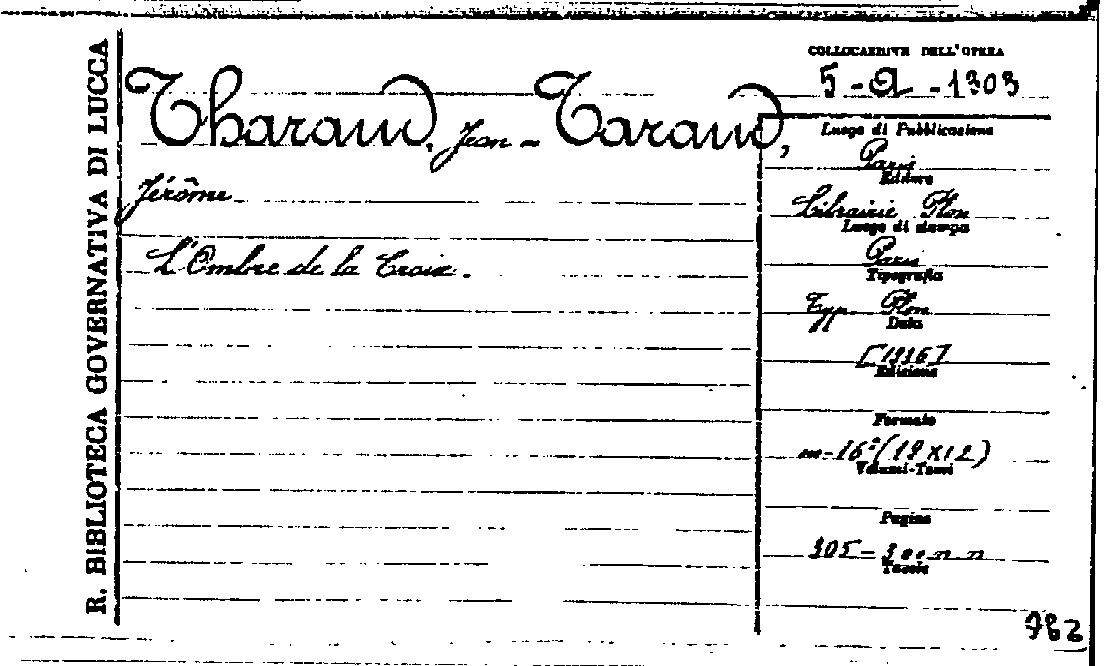 R. BIBLIOTECA GOVERNATIVA DI LUCCA
Tharaud, Jean - Taraud,
Jérôme
L'Ombre de la Croix.
COLLOCAZIONE DELL'OPERA
5 - a - 1303
Luogo di Pubblicazione
Paris
Editore
Librairie Plon
Luogo di stampa
Paris
Tipografia
Typ. Plon
Data
[1936]
Edizione
Formato
in-16°(19X12)
Volumi-Tomi
Pagine
305 -
Tavole
782